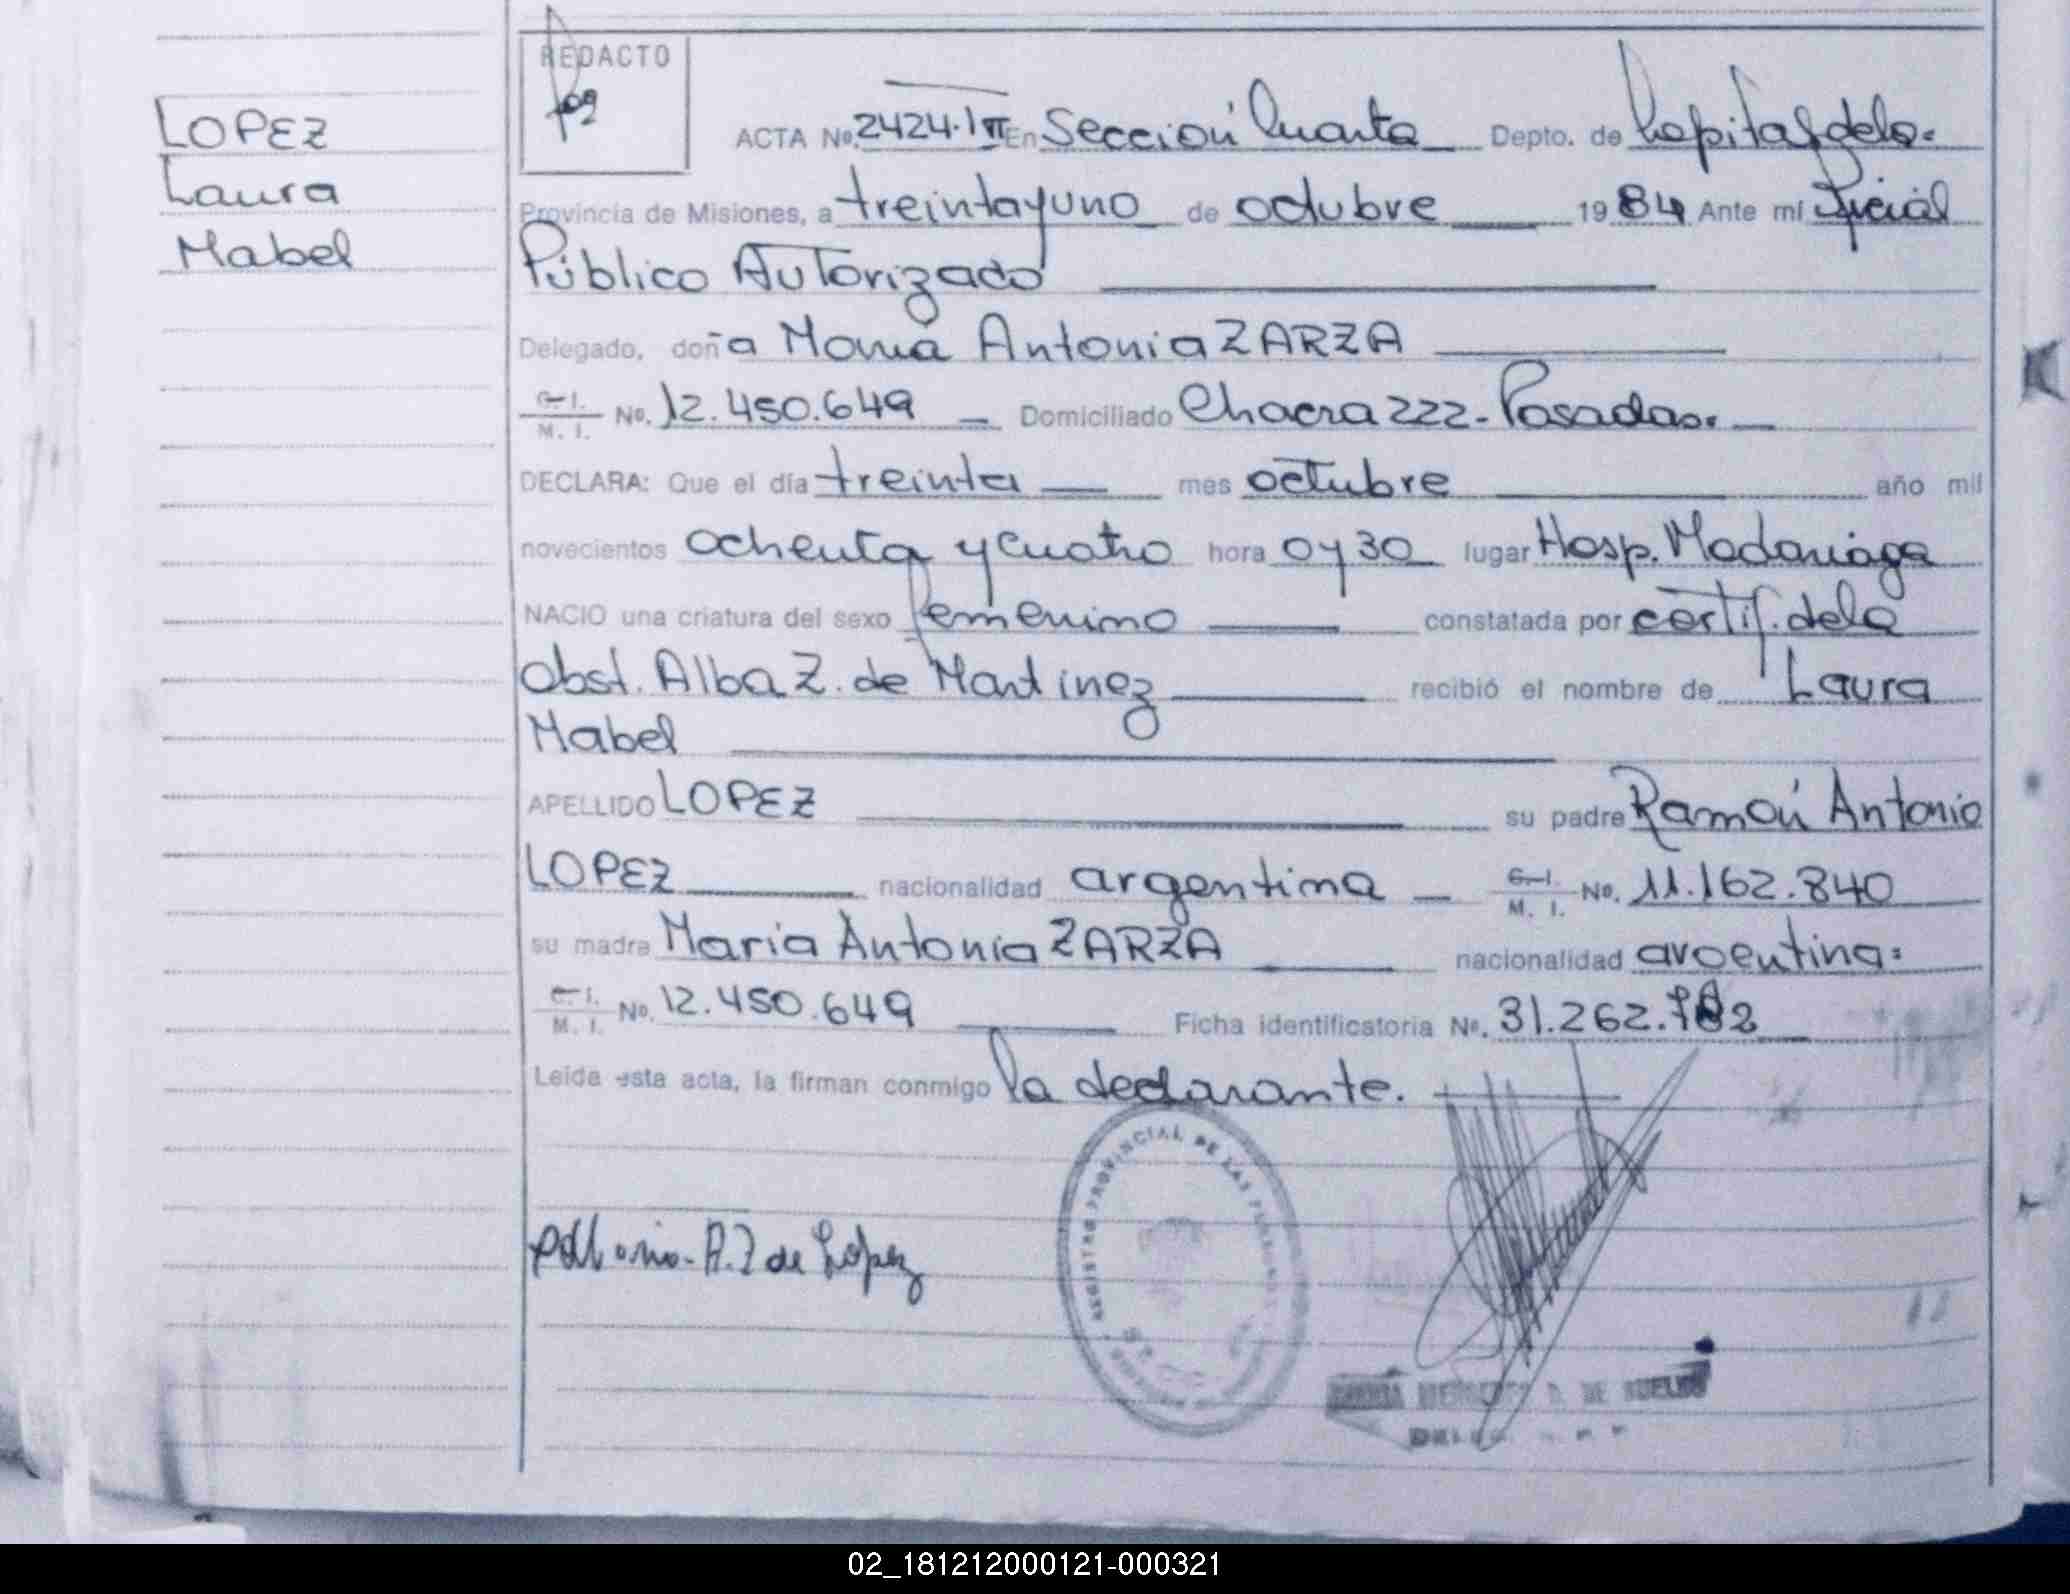 REDACTO
LOPEZ
Laura
Mabel
ACTA No. 2424. 1 En Sección Cuarta Depto. de
Provincia de Misiones, a treintayuno de octubre 1984 Ante mí
Público Autorizado
Delegado, doña María Antonia ZARZA
C. I. M. I. No. 12.450.649 Domiciliado Chacra 222 - Posadas.
DECLARA: Que el día treinta mes octubre año mil
novecientos ochenta y cuatro hora 0 y 30 lugar Hosp. Madariaga
NACIO una criatura del sexo femenino constatada por certif. de la
Obst. Alba Z. de Martinez recibió el nombre de Laura
Mabel
APELLIDO LOPEZ su padre Ramón Antonio
LOPEZ nacionalidad argentina C. I. M. I. No. 11.162.840
su madre María Antonia ZARZA nacionalidad argentina
C. I. M. I. No. 12.450.649 Ficha identificatoria No. 31.262.
Leída esta acta, la firman conmigo la declarante.
A. Z de López
REGISTRO PROVINCIAL DE LAS PERSONAS
02_181212000121-000321